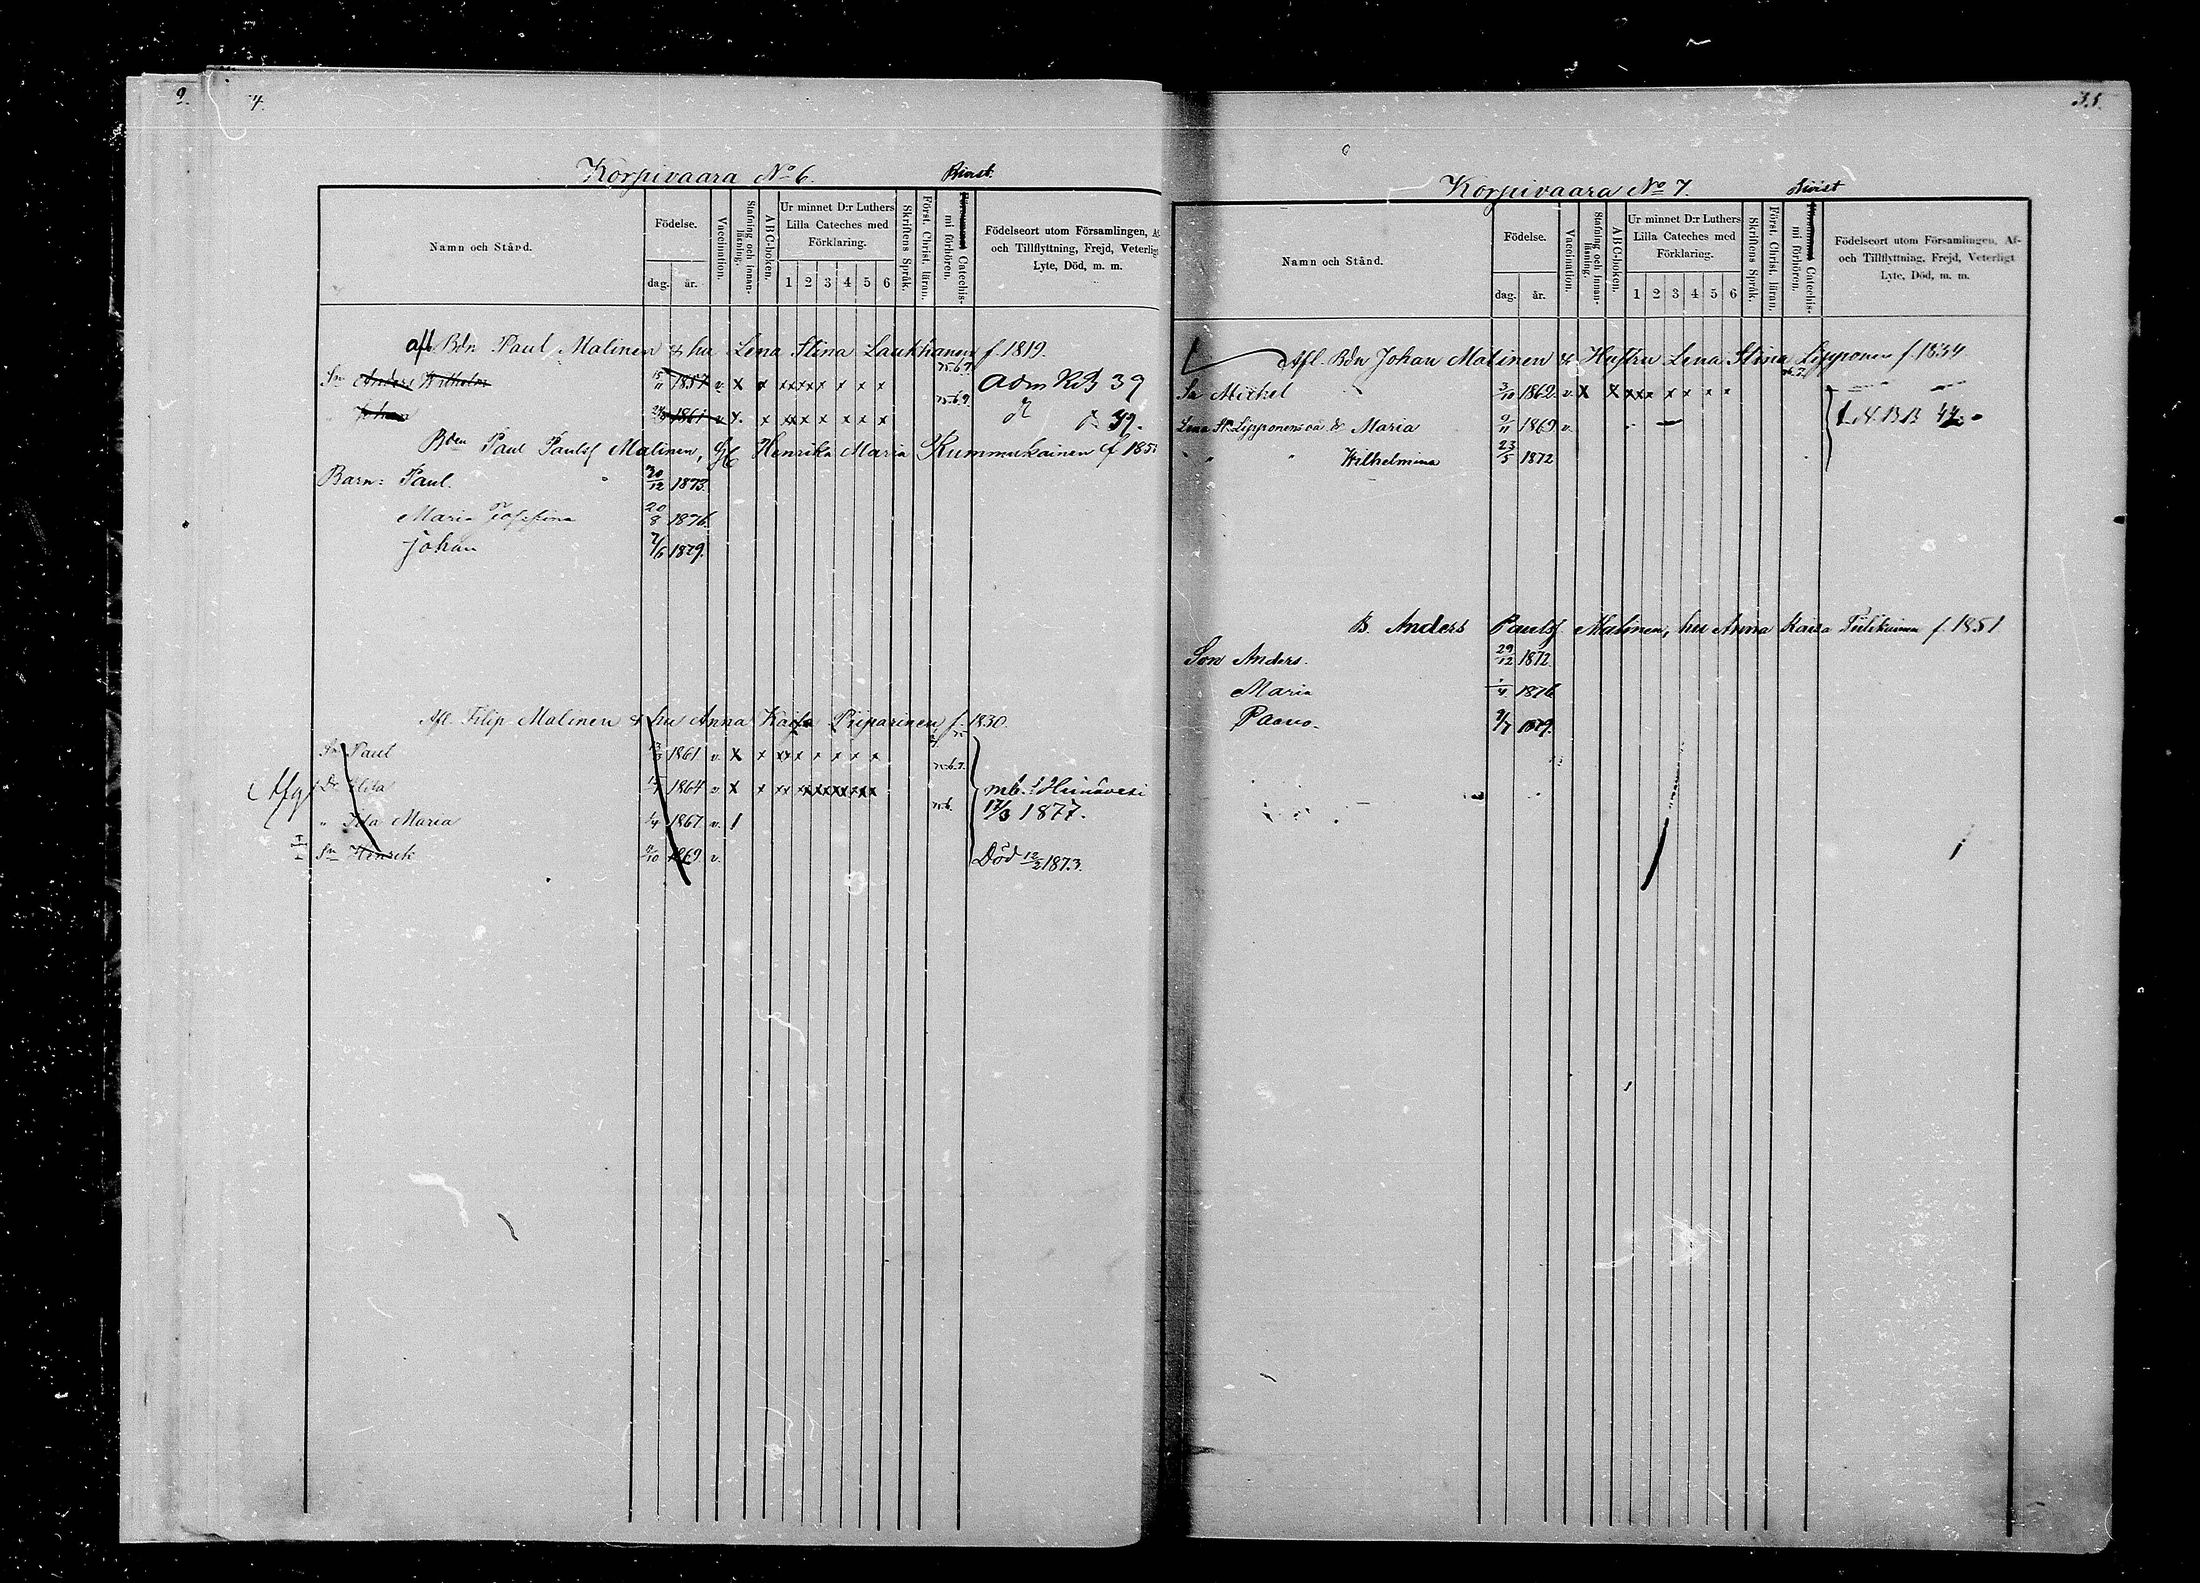 9
4.
Korpivaara No 6.
Namn och Stånd.
Födelse.
dag. år.
Vaccination.
Stafning och innanläsning.
ABC-boken.
Ur minnet D:r Luthers
Lilla Cateches med
Förklaring.
1 2 3 4 5 6
Skriftens Språk.
Först. Christ. läran.
Catechismi förhören.
Födelseort utom Församlingen, Af-
och Tillflyttning, Frejd, Veterligt
Lyte, Död, m. m.
afl. Bdn Paul Malinen & hu Lena Stina Laukkanen f. 1819.
Sn Anders Wilhelm 15/11 1857 v. x x x x x x x x x x 75.6.7. Adm KB 39
" Johan 1861 v x. x x x x x x x x 39.
Bden Paul Paulsf Malinen, Henrika Maria Kummukainen f 185
Barn: Paul. 30/12 1873.
Maria Josefina 20/8 1876.
Johan 7/6 1879.
Afl. Filip Malinen & hu Anna Kaisa Piiparinen f. 1830.
Sn Paul 1861 v. x x x x x x x x x
Afg Dr Elisa 1864 v. x x x x x x x x x x 75.6.7. mb. t Heinävesi
" Ida Maria 1/4 1867 v. 1 75.6. 17/3 1877.
Sn Henrik 11/10 1869 v. Död 12/2 1873.
35.
Korpivaara No 7.
Namn och Stånd.
Födelse.
dag. år.
Vaccination.
Stafning och innanläsning.
ABC-boken.
Ur minnet D:r Luthers
Lilla Cateches med
Förklaring.
1 2 3 4 5 6
Skriftens Språk.
Först. Christ. läran.
Catechismi förhören.
Födelseort utom Församlingen, Af-
och Tillflyttning, Frejd, Veterligt
Lyte, Död, m. m.
Afl. Bdn Johan Malinen & Hustru Lena Stina Lipponen f. 1834
Sn Michel 3/10 1862. v. x x x x x x x x x
Lena St. Lipponens oä dr Maria 9/11 1869 v.
" " " Wilhelmina 23/5 1872
B. Anders Paulsf. Malinen, hu Anna Kaisa Tulikainen f. 1851
Son Anders. 29/12 1872.
Maria 1/4 1876
Paavo. 9/7 1879.